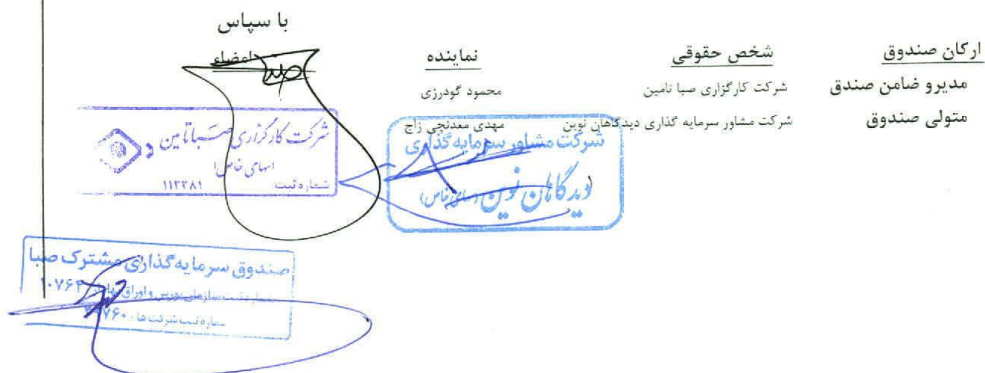 با سپاس
ارکان صندوق شخص حقوقی نماینده امضاء
مدیرو ضامن صندق شرکت کارگزاری صبا تامین محمود گودرزی
متولی صندوق شرکت مشاور سرمایه گذاری دیدگاهان نوین مهدی معدنچی زاج
شرکت کارگزاری صبا تامین
(سهامی خاص)
شماره ثبت ۱۱۲۲۸۱
شرکت مشاور سرمایه گذاری
دیدگاهان نوین (سهامی خاص)
صندوق سرمایه گذاری مشترک صبا
شماره ثبت سازمان بورس و اوراق
شماره ثبت شرکت ها: